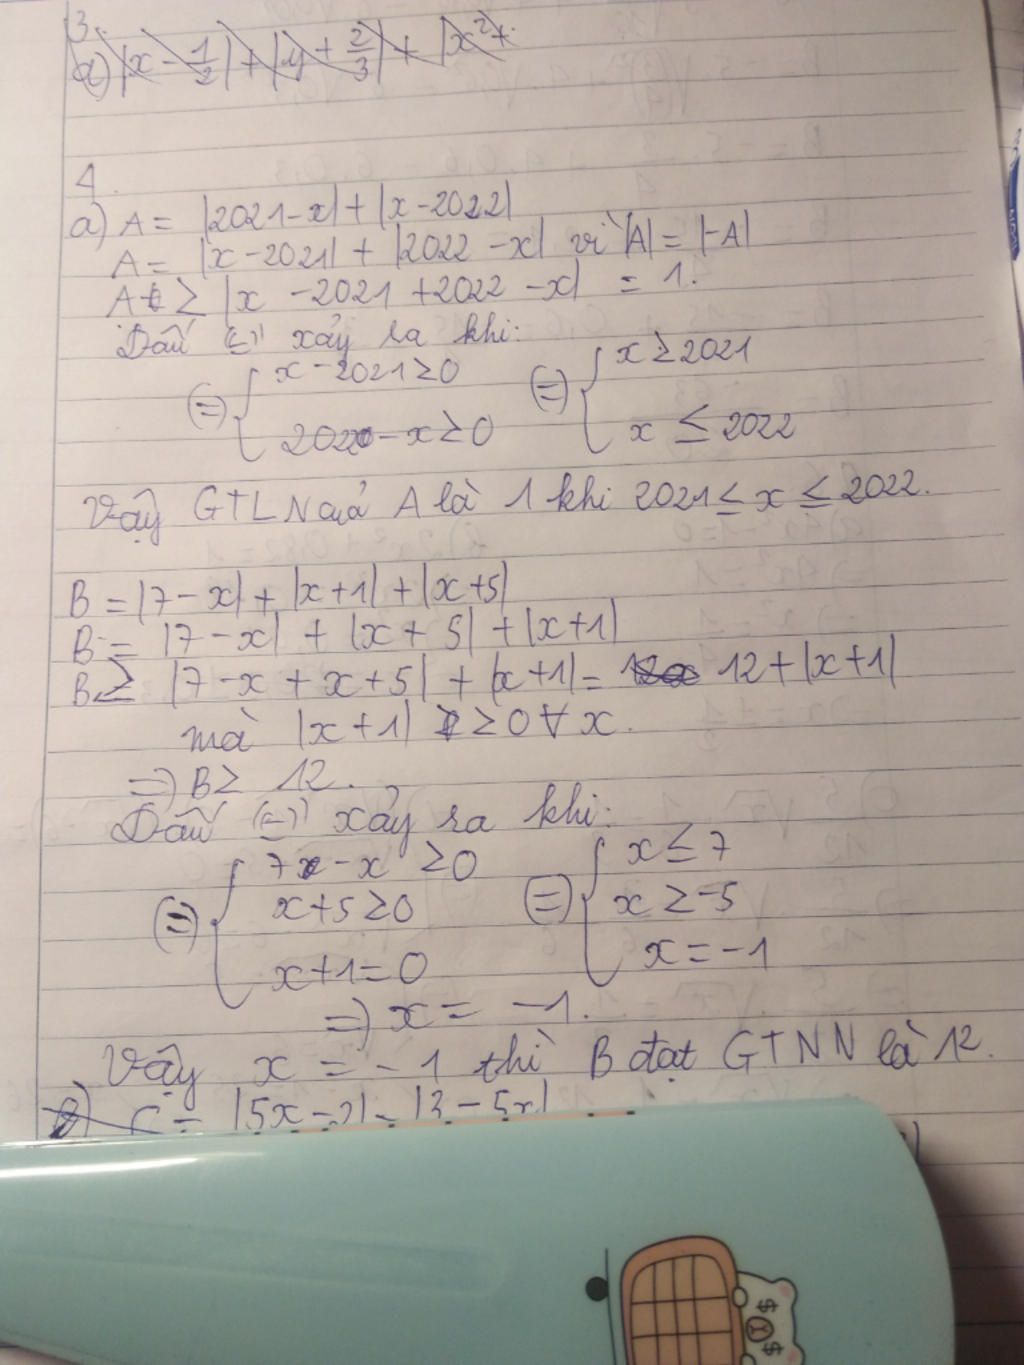 3.
a) |x - 1/2| + |y + 2/3| + |x² +
4.
a) A = |2021 - x| + |x - 2022|
A = |x - 2021| + |2022 - x| vì |A| = |-A|
A ≥ |x - 2021 + 2022 - x| = 1.
Dấu "=" xảy ra khi:
(=) { x - 2021 ≥ 0 (=) { x ≥ 2021
2022 - x ≥ 0 x ≤ 2022
Vậy GTLN của A là 1 khi 2021 ≤ x ≤ 2022.
B = |7 - x| + |x + 1| + |x + 5|
B = |7 - x| + |x + 5| + |x + 1|
B ≥ |7 - x + x + 5| + |x + 1| = 12 + |x + 1|
mà |x + 1| ≥ 0 ∀ x.
=> B ≥ 12.
Dấu "=" xảy ra khi:
(=) { 7 - x ≥ 0 (=) { x ≤ 7
x + 5 ≥ 0 x ≥ -5
x + 1 = 0 x = -1
=> x = -1.
Vậy x = -1 thì B đạt GTNN là 12.
C = |5x - 2| - |3 - 5x|